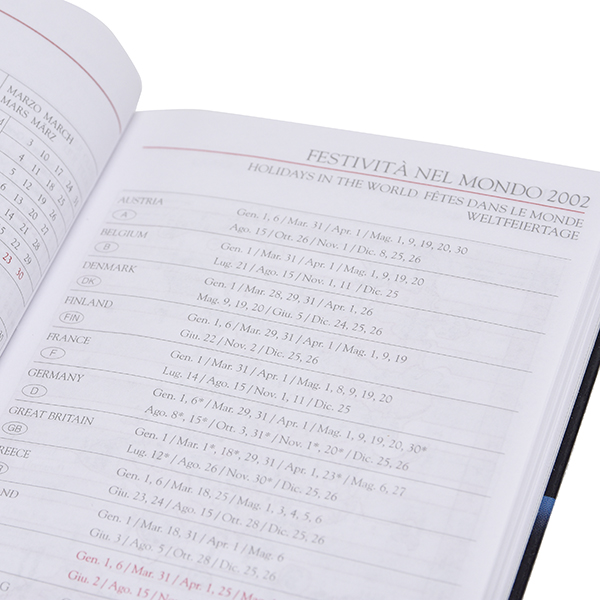 MARZO MARCH
MARS MÄRZ
3 10 17 24 31
4 11 18 25
5 12 19 26
6 13 20 27
23 30
FESTIVITÀ NEL MONDO 2002
HOLIDAYS IN THE WORLD FÊTES DANS LE MONDE
WELTFEIERTAGE
AUSTRIA Gen. 1, 6 / Mar. 31 / Apr. 1 / Mag. 1, 9, 19, 20, 30
A Ago. 15 / Ott. 26 / Nov. 1 / Dic. 8, 25, 26
BELGIUM Gen. 1 / Mar. 31 / Apr. 1 / Mag. 1, 9, 19, 20
B Lug. 21 / Ago. 15 / Nov. 1, 11 / Dic. 25
DENMARK Gen. 1 / Mar. 28, 29, 31 / Apr. 1, 26
DK Mag. 9, 19, 20 / Giu. 5 / Dic. 24, 25, 26
FINLAND Gen. 1, 6 / Mar. 29, 31 / Apr. 1 / Mag. 1, 9, 19
FIN Giu. 22 / Nov. 2 / Dic. 25, 26
FRANCE Gen. 1 / Mar. 31 / Apr. 1 / Mag. 1, 8, 9, 19, 20
F Lug. 14 / Ago. 15 / Nov. 1, 11 / Dic. 25
GERMANY Gen. 1, 6* / Mar. 29, 31 / Apr. 1 / Mag. 1, 9, 19, 20, 30*
D Ago. 8*, 15* / Ott. 3, 31* / Nov. 1*, 20* / Dic. 25, 26
GREAT BRITAIN Gen. 1 / Mar. 1*, 18*, 29, 31 / Apr. 1, 23* / Mag. 6, 27
GB Lug. 12* / Ago. 26 / Nov. 30* / Dic. 25, 26
REECE Gen. 1, 6 / Mar. 18, 25 / Mag. 1, 3, 4, 5, 6
Giu. 23, 24 / Ago. 15 / Ott. 28 / Dic. 25, 26
ND Gen. 1 / Mar. 18, 31 / Apr. 1 / Mag. 6
Giu. 3 / Ago. 5 / Ott. 28 / Dic. 25, 26
Gen. 1, 6 / Mar. 31 / Apr. 1, 25 / Mag.
Giu. 2 / Ago. 15 / Nov.
G